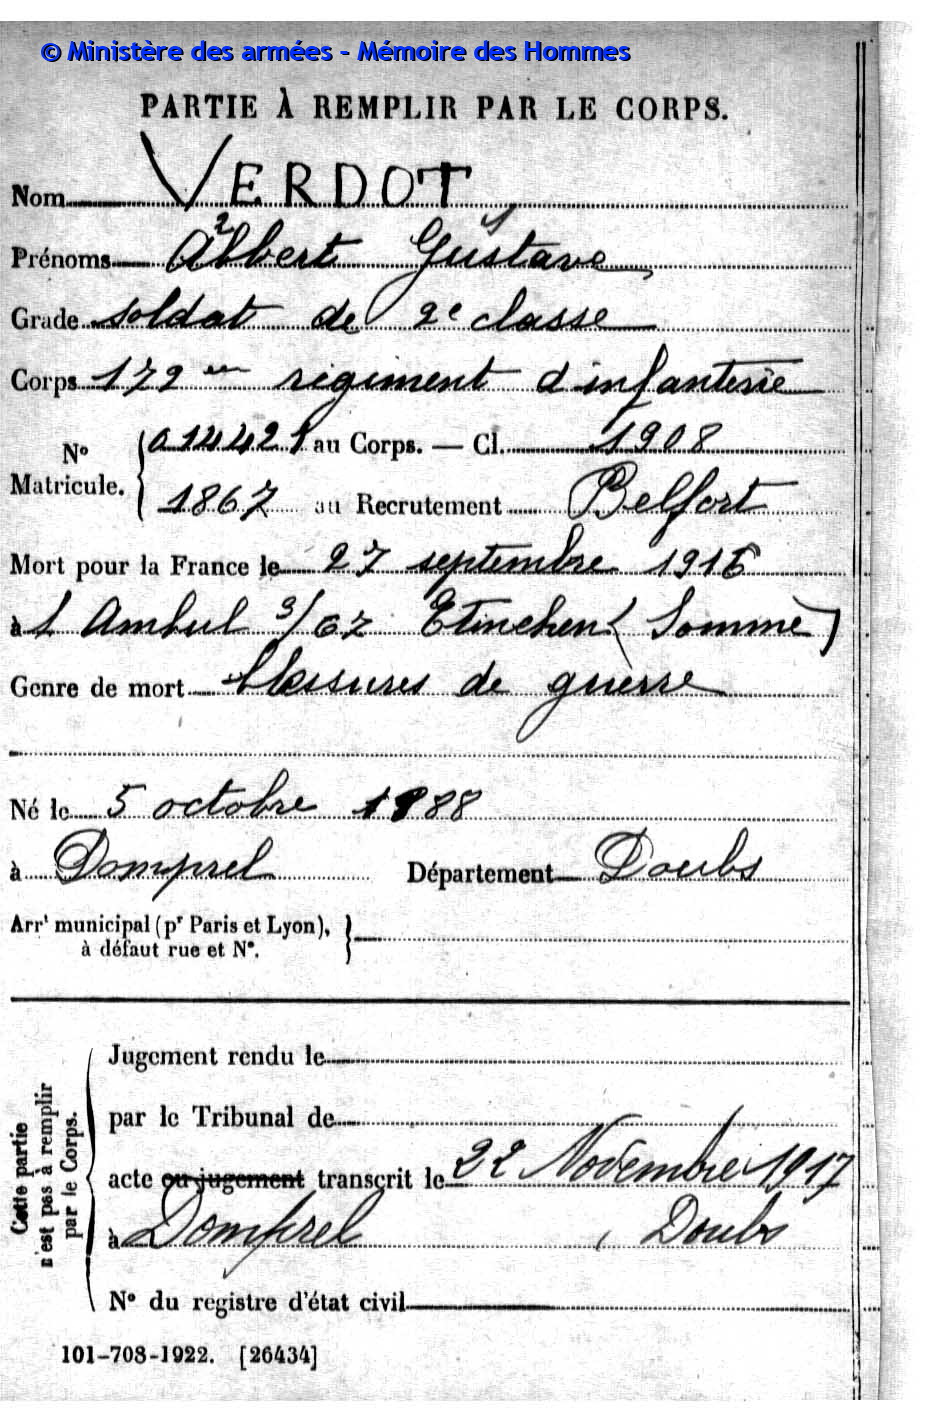 © Ministère des armées - Mémoire des Hommes
PARTIE À REMPLIR PAR LE CORPS.
Nom VERDOT
2 1
Prénoms Albert Gustave
Grade soldat de 2e classe
Corps 172eme régiment d'infanterie
N° Matricule. { 014421 au Corps. — Cl. 1908
1867 au Recrutement Belfort
Mort pour la France le 27 septembre 1916
à l'Ambul 3/67 Etinehen (Somme)
Genre de mort blessures de guerre
Né le 5 octobre 1888
à Domprel Département Doubs
Arrt municipal (pr Paris et Lyon),
à défaut rue et N°.
Cette partie n'est pas à remplir par le Corps.
Jugement rendu le
par le Tribunal de
acte ou jugement transcrit le 22 Novembre 1917
à Domprel, Doubs
N° du registre d'état civil
101-708-1922. [26434]